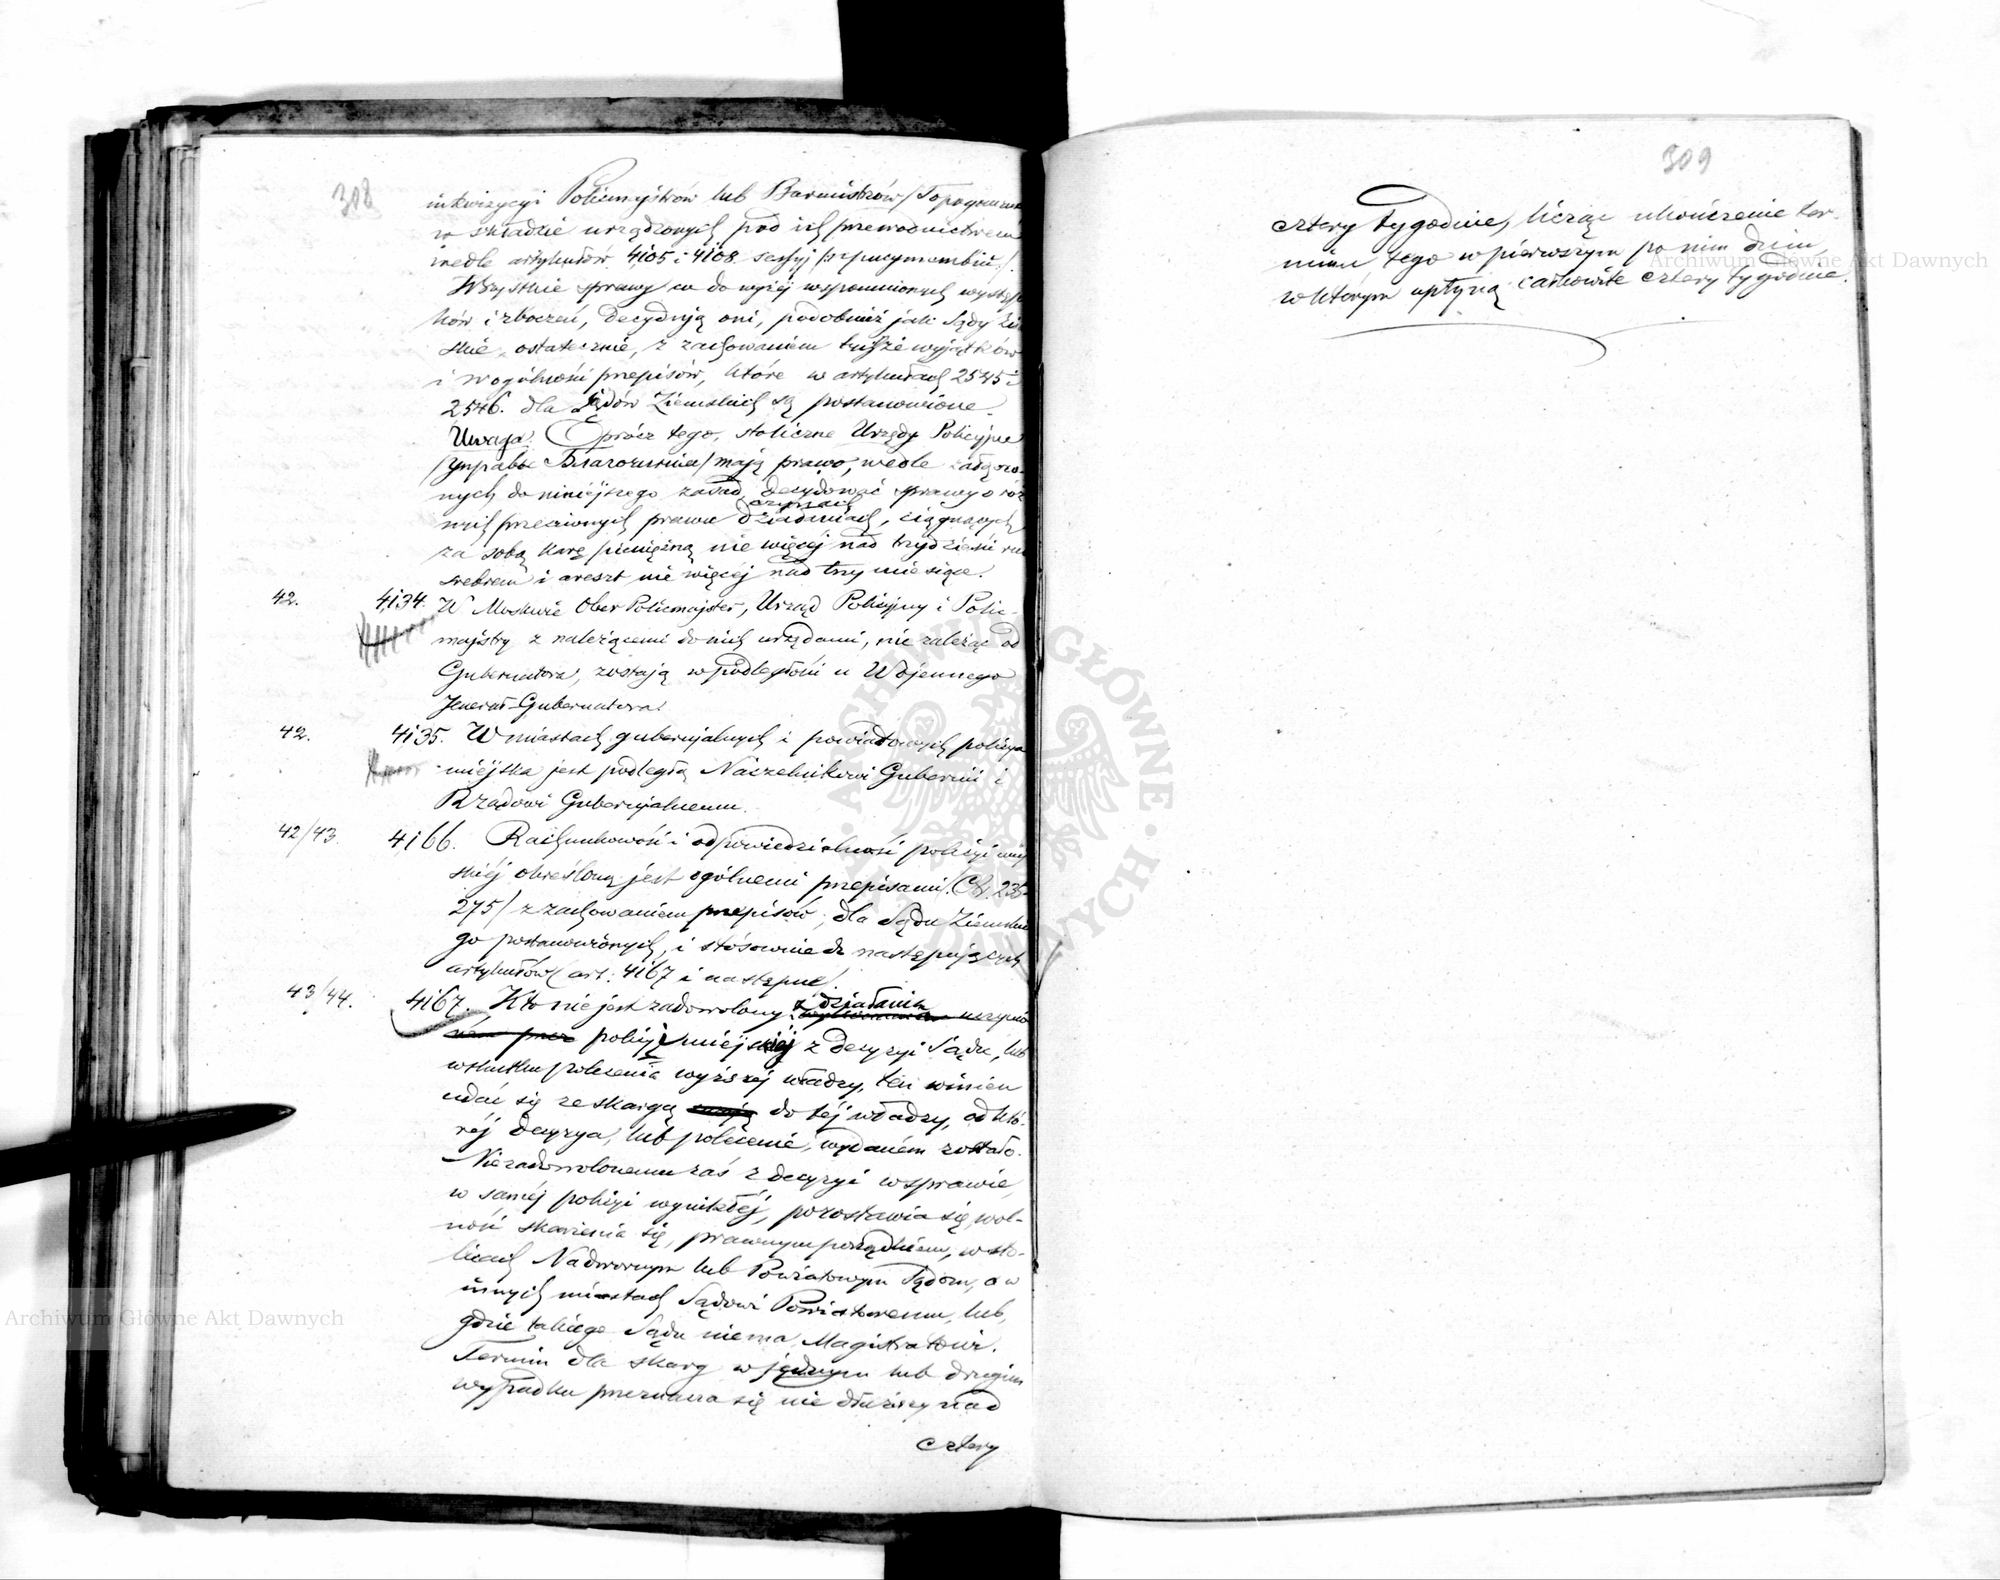 308
inkwizycyi Policmajstrów lub Burmistrzów
w składzie urządzonych pod ich przewodnictwem
wedle artykułów 4105 i 4108 sessyj
Wszystkie sprawy co do wyżej wspomnionych występ
ków i zboczeń, decydują oni, podobnież jak Sądy Ziem
skie, ostatecznie, z zachowaniem tychże wyjątków
i w ogólności przepisów, które w artykułach 2545 i
2546. dla Sądów Ziemskich są postanowione.
Uwaga. Oprócz tego, stoliczne Urzędy Policyjne
/управы Благочиния/ mają prawo, wedle załączo
nych do niniejszego zasad, decydować sprawy o róż
nych przeciwnych prawu czynach działaniach, ciągnących
za sobą karę pieniężną nie więcej nad trzydzieści
srebrem i areszt nie więcej nad trzy miesiące.
42. 4134. W Moskwie Ober Policmajster, Urząd Policyjny i Polic-
majstry z należącemi do nich urzędami, nie zależąc od
Gubernatora, zostają w podległości u Wojennego
Jenerał-Gubernatora.
42. 4135. W miastach gubernjalnych i powiatowych policya
miejska jest podległą Naczelnikowi Gubernii i
Rządowi Gubernjalnemu.
42/43. 4166. Rachunkowość i odpowiedzialność policyi miej
skiej określoną jest ogólnemi przepisami
275/ z zachowaniem przepisów, dla Sądu Ziemskie
go postanowionych, i stósownie do następujących
artykułów (art. 4167 i następne/.
43/44. 4167. Kto nie jest zadowolony z działania
policyi miejskiej z decyzyi Sądu, lub
wskutku polecenia wyższej władzy, ten winien
udać się ze skargą do tej władzy, od któ-
rej decyzya, lub polecenie, wydaném zostało.
Niezadowolonemu zaś z decyzyi w sprawie,
w saméj policyi wynikłéj, pozostawia się wol-
ność skarżenia się, prawnym porządkiem, w sto-
licach Nadwornym lub Powiatowym Sądom, a w
innych miastach Sądowi Powiatowemu, lub,
gdzie takiego Sądu niema Magistratowi.
Termin dla skarg w jednym lub drugim
wypadku przeznacza się nie dłuższy nad
cztery
309
cztery tygodnie, licząc ukończenie ter-
minu tego w pierwszym po nim dniu,
w którym upłyną całkowite cztery tygodnie.
Archiwum Główne Akt Dawnych
Archiwum Główne Akt Dawnych
ARCHIWUM GŁÓWNE AKT DAWNYCH